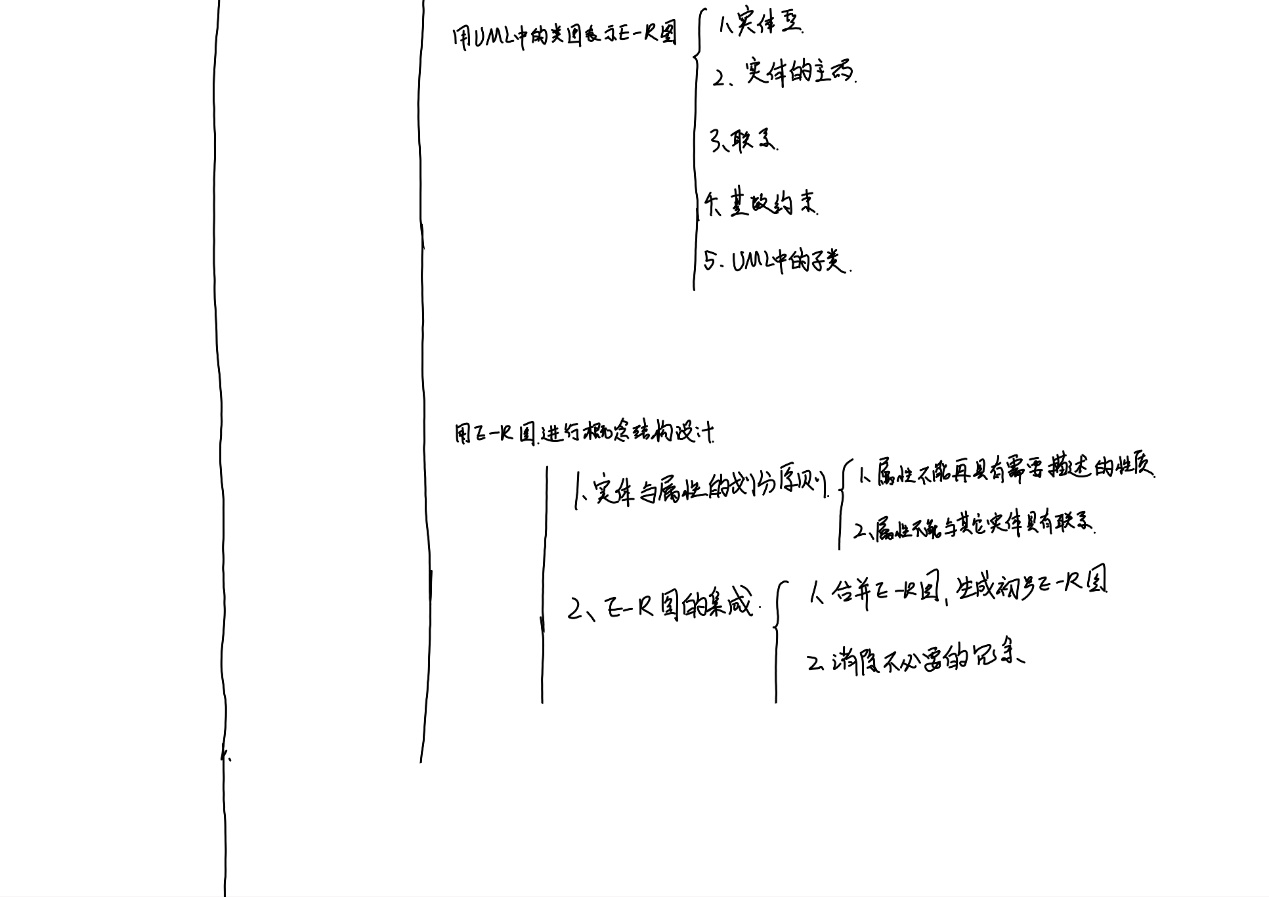 用UML中的类图表示E-R图
1、实体型.
2、实体的主码.
3、联系.
4、基数约束.
5、UML中的子类.
用E-R图进行概念结构设计
1、实体与属性的划分原则.
1、属性不能再具有需要描述的性质.
2、属性不能与其它实体具有联系.
2、E-R图的集成.
1、合并E-R图,生成初步E-R图
2、消除不必要的冗余、